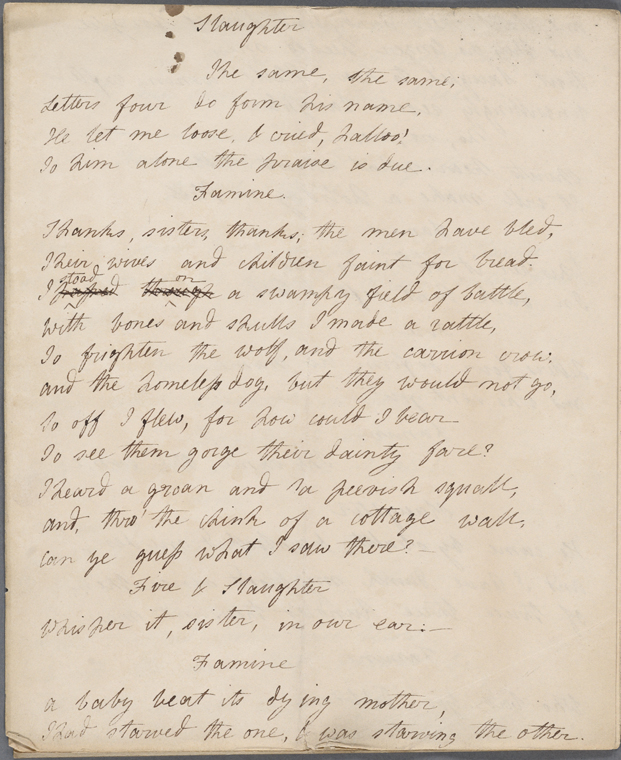 Slaughter
The same, the same;
Letters four do form his name.
He let me loose, & cried, halloo!
To him alone the praise is due.
Famine.
Thanks, sisters, thanks; the men have bled,
Their wives and children faint for bread.
stood on
I passed through a swampy field of battle,
with bones and skulls I made a rattle,
To frighten the wolf, and the carrion crow,
and the homeless dog, but they would not go,
So off I flew, for how could I bear
To see them gorge their dainty fare?
I heard a groan and a peevish squall,
and, thro' the chink of a cottage wall,
can ye guess what I saw there? —
Fire & Slaughter
Whisper it, sister, in our ear: —
Famine
a baby beat its dying mother,
I had starved the one, & was starving the other.